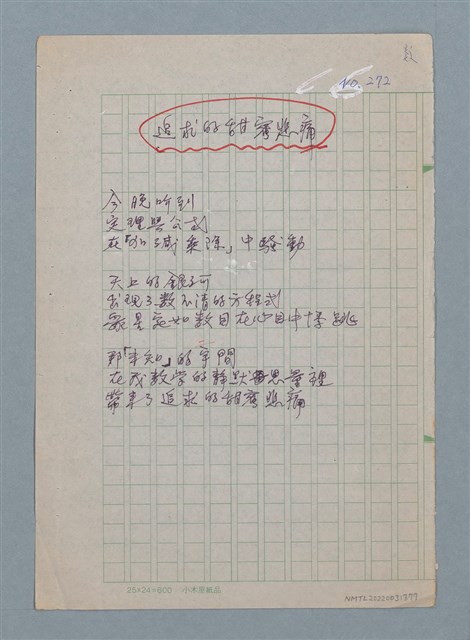 数
No. 272
追求的甜蜜悲痛
今晚听到
定理與公式
在「加了减乘除」中騷動
天上的銀河
出現了数不清的方程式
数目在心目中
那「未知」的空間
在成数学的靜默思量裡
帶來了追求的甜蜜悲痛
25×24=600 小木屋紙品
NMTL20220031377